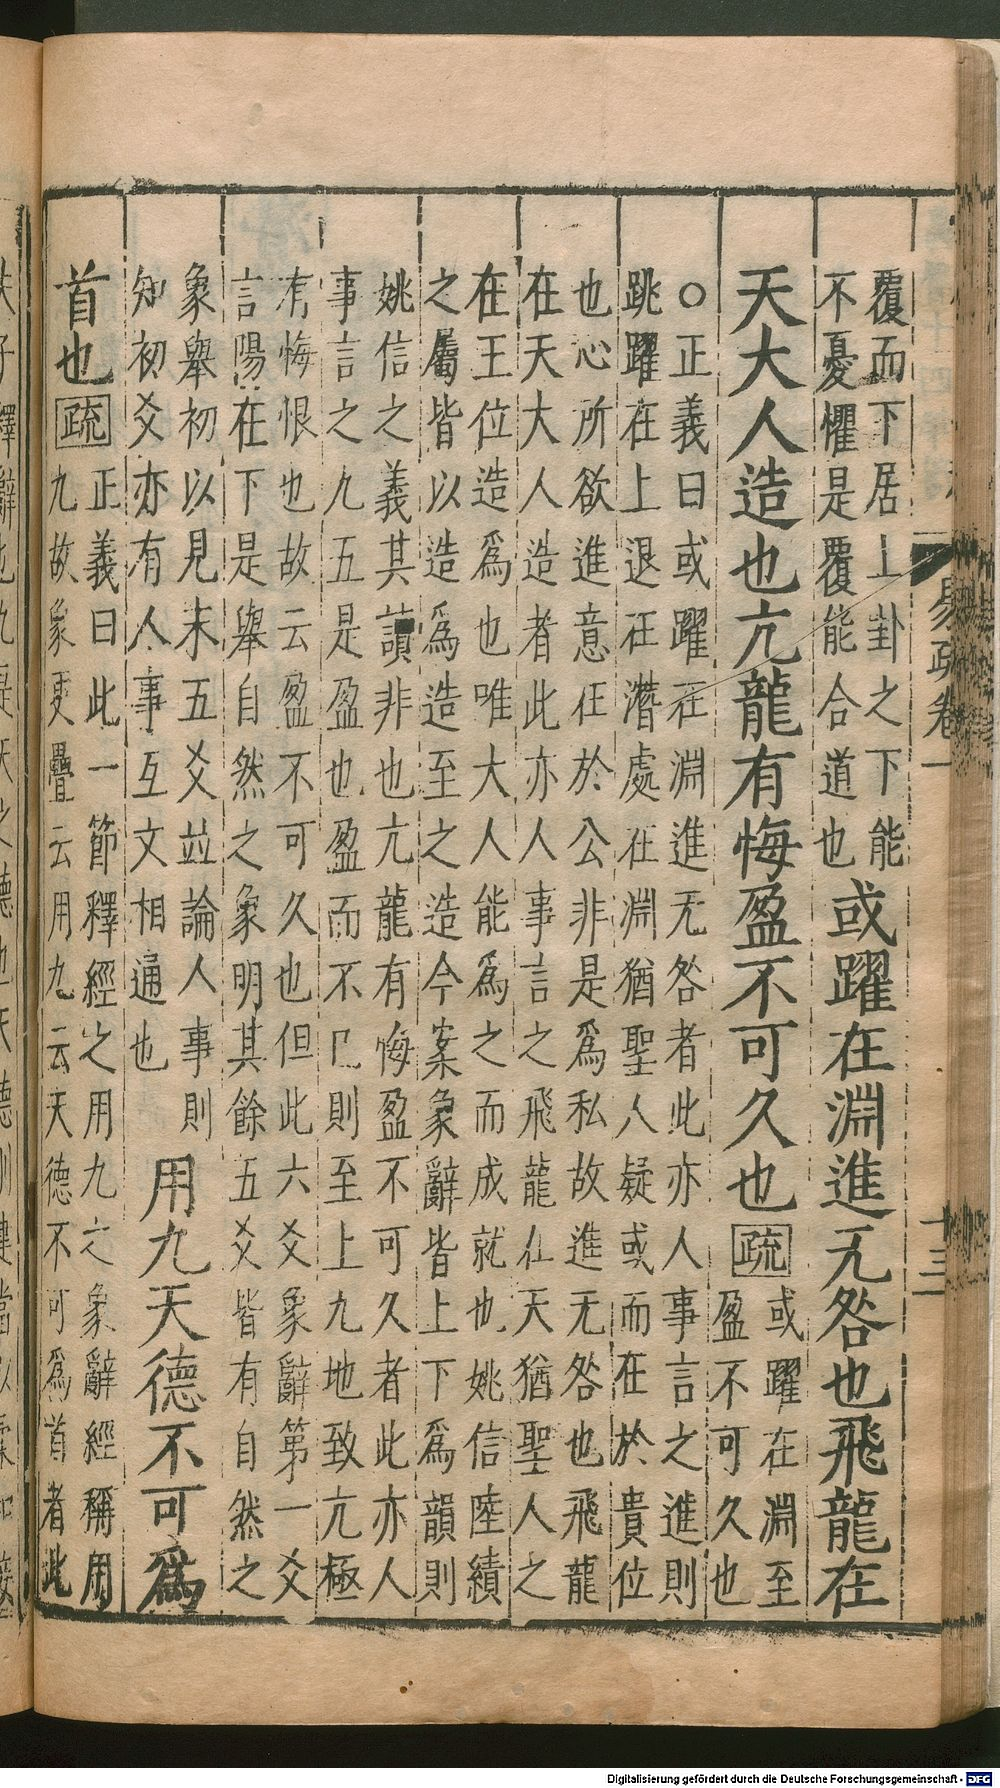 覆而下居上卦之下能
不憂懼是覆能合道也
或躍在淵進无咎也飛龍在
天大人造也亢龍有悔盈不可久也
疏
或躍在淵至
盈不可久也
○正義曰或躍在淵進无咎者此亦人事言之進則
跳躍在上退在潛處在淵猶聖人疑或而在於貴位
也心所欲進意在於公非是爲私故進无咎也飛龍
在天大人造者此亦人事言之飛龍在天猶聖人之
在王位造爲也唯大人能爲之而成就也姚信陸績
之屬皆以造爲造至之造今案象辭皆上下爲韻則
姚信之義其讀非也亢龍有悔盈不可久者此亦人
事言之九五是盈也盈而不已則至上九地致亢極
有悔恨也故云盈不可久也但此六爻象辭第一爻
言陽在下是舉自然之象明其餘五爻皆有自然之
象舉初以見末五爻並論人事則
知初爻亦有人事互文相通也
用九天德不可爲
首也
疏
正義曰此一節釋經之用九之象辭經稱用
九故象更疊云用九云天德不可爲首者此
易疏卷一
十三
Digitalisierung gefördert durch die Deutsche Forschungsgemeinschaft - DFG